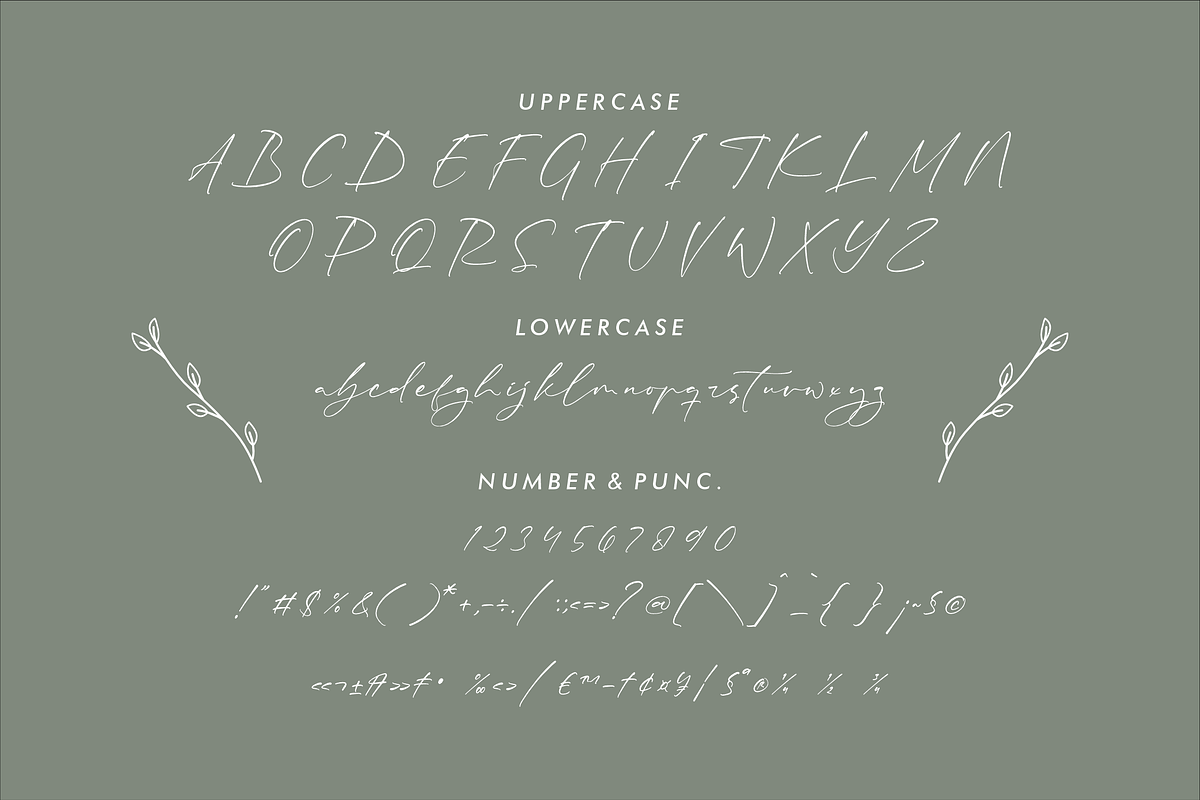 UPPERCASE
A B C D E F G H I J K L M N
O P Q R S T U V W X Y Z
LOWERCASE
a b c d e f g h i j k l m n o p q r s t u v w x y z
NUMBER & PUNC.
1 2 3 4 5 6 7 8 9 0
! " # $ % & ( ) * + , - ÷ . / : ; < = > ? @ [ \ ] ^ ` _ { } ¡ ~ § ©
« ¬ ± » • ‰ < > / € ™ – † ¢ ¤ ¥ | § ª © ¼ ½ ¾